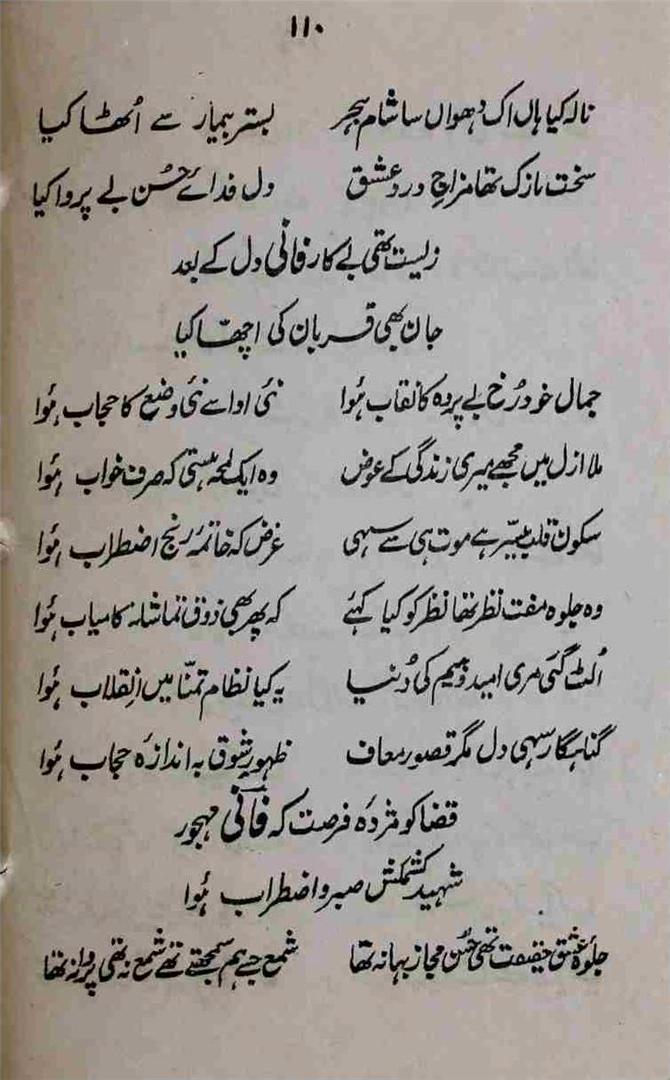 ۱۱۰
نالہ کیا ہاں اک دھواں سا شام ہجر بستر بیمار سے اُٹھا کیا
سخت نازک تھا مزاجِ دردِ عشق دل فدائے حُسن بے پروا کیا
زیست تھی بے کار فانی دل کے بعد
جان بھی قربان کی اچھّا کیا
جمال خود رُخ بے پردہ کا نقاب ہُوا نئی ادا سے نئی وضع کا حجاب ہُوا
ملا ازل میں مجھے میری زندگی کے عوض وہ ایک لمحہ ہستی کہ صرف خواب ہُوا
سکون قلب میسّر ہے موت ہی سے سہی غرض کہ خاتمۂ رنج اضطراب ہُوا
وہ جلوہ مفت نظر تھا نظر کو کیا کہئے کہ پھر بھی ذوق تماشا نہ کامیاب ہُوا
اُلٹ گئی مری امید و بیم کی دُنیا یہ کیا نظام تمنّا میں انقلاب ہُوا
گناہگار سہی دل مگر قصور معاف ظہورِ شوق بہ اندازۂ حجاب ہُوا
قضا کو مژدۂ فرصت کہ فانی مہجور
شہید کشمکش صبر و اضطراب ہُوا
جلوۂ عشق حقیقت تھی حُسن مجاز بہانہ تھا شمع جسے ہم سمجھتے تھے شمع نہ تھی پروانہ تھا